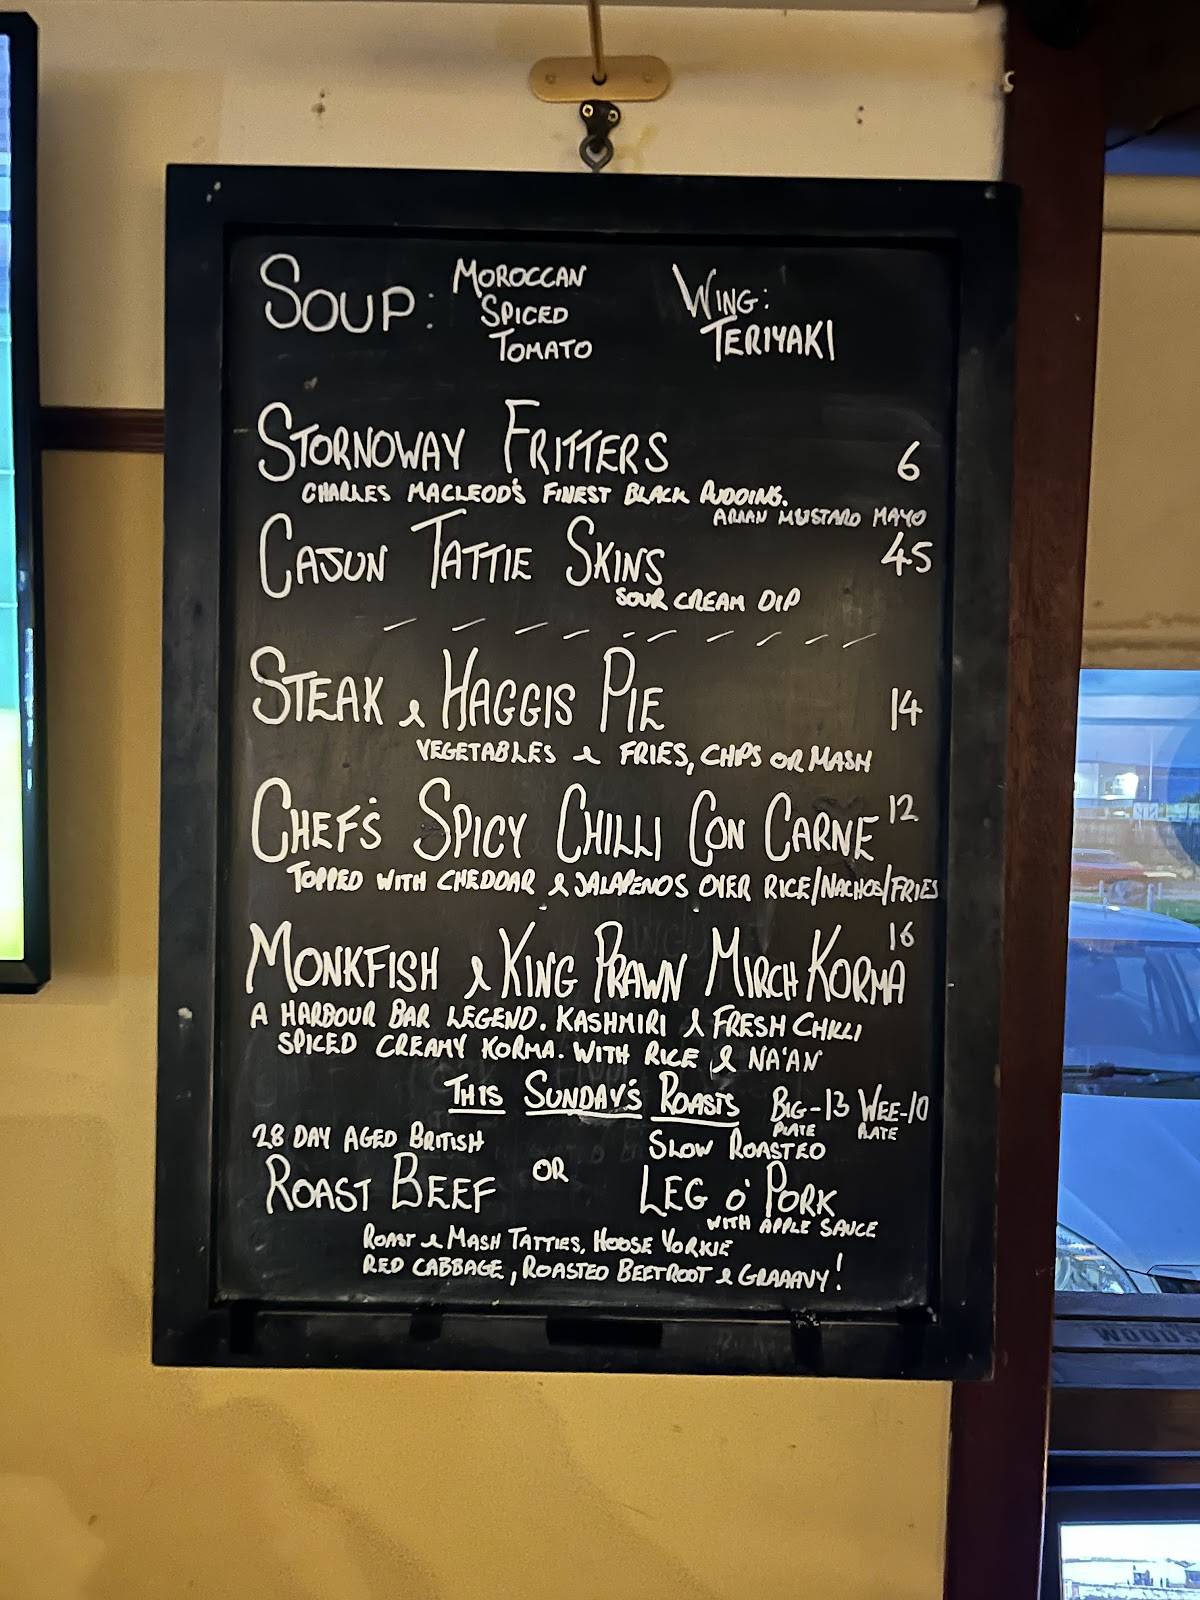 SOUP: MOROCCAN SPICED TOMATO
WING: TERIYAKI
STORNOWAY FRITTERS 6
CHARLES MACLEOD'S FINEST BLACK PUDDING.
ARRAN MUSTARD MAYO
CAJUN TATTIE SKINS 4.5
SOUR CREAM DIP
STEAK & HAGGIS PIE 14
VEGETABLES & FRIES, CHIPS OR MASH
CHEF'S SPICY CHILLI CON CARNE 12
TOPPED WITH CHEDDAR & JALAPENOS OVER RICE/NACHOS/FRIES
MONKFISH & KING PRAWN MIRCH KORMA 16
A HARBOUR BAR LEGEND. KASHMIRI & FRESH CHILLI
SPICED CREAMY KORMA. WITH RICE & NA'AN
THIS SUNDAY'S ROASTS BIG PLATE-13 WEE PLATE-10
28 DAY AGED BRITISH
ROAST BEEF
OR
SLOW ROASTED
LEG O' PORK
WITH APPLE SAUCE
ROAST & MASH TATTIES, HOOSE YORKIE
RED CABBAGE, ROASTED BEETROOT & GRAAAVY!
WOODS